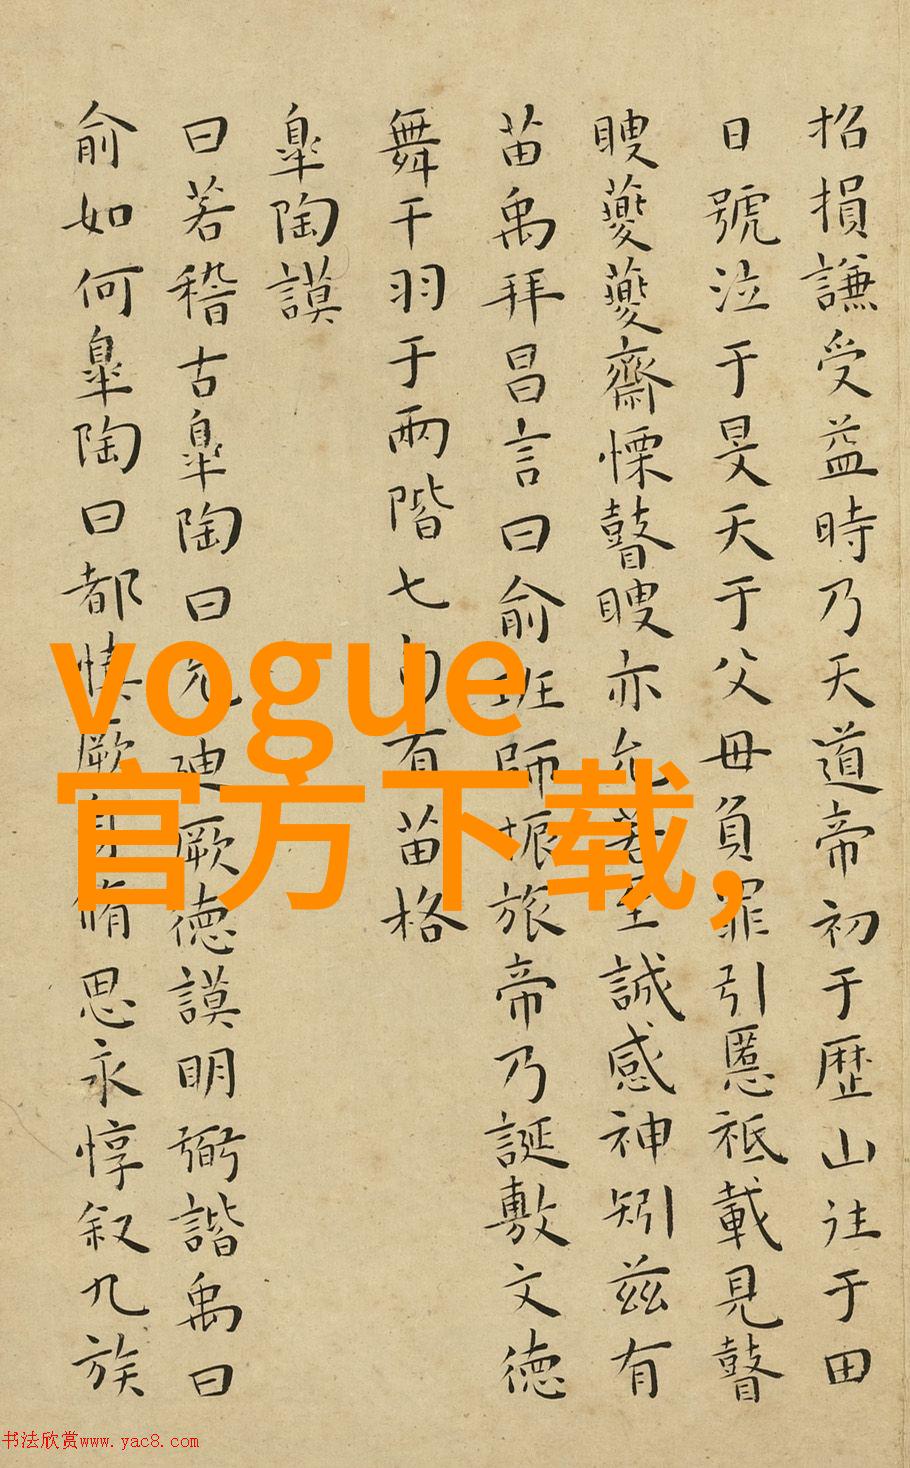 招損謙受益時乃天道帝初于歴山往于田
日號泣于旻天于父母負罪引慝祗載見瞽
瞍夔夔齋慄瞽瞍亦允若至誠感神矧兹有
苗禹拜昌言曰俞班師振旅帝乃誕敷文德
舞干羽于兩階七旬有苗格
皐陶謨
曰若稽古皐陶曰允迪厥德謨明弼諧禹曰
俞如何皐陶曰都慎厥身脩思永惇叙九族
vogue
官方下载,
书法欣赏www.yac8.com